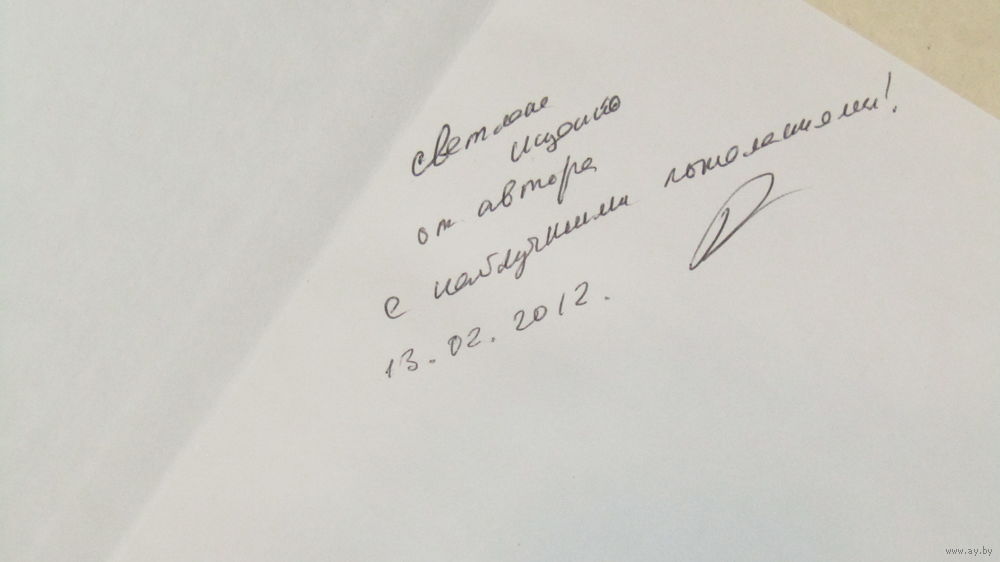 Светлане
Ищенко
от автора
с наилучшими пожеланиями!
13.02.2012.
www.ay.by